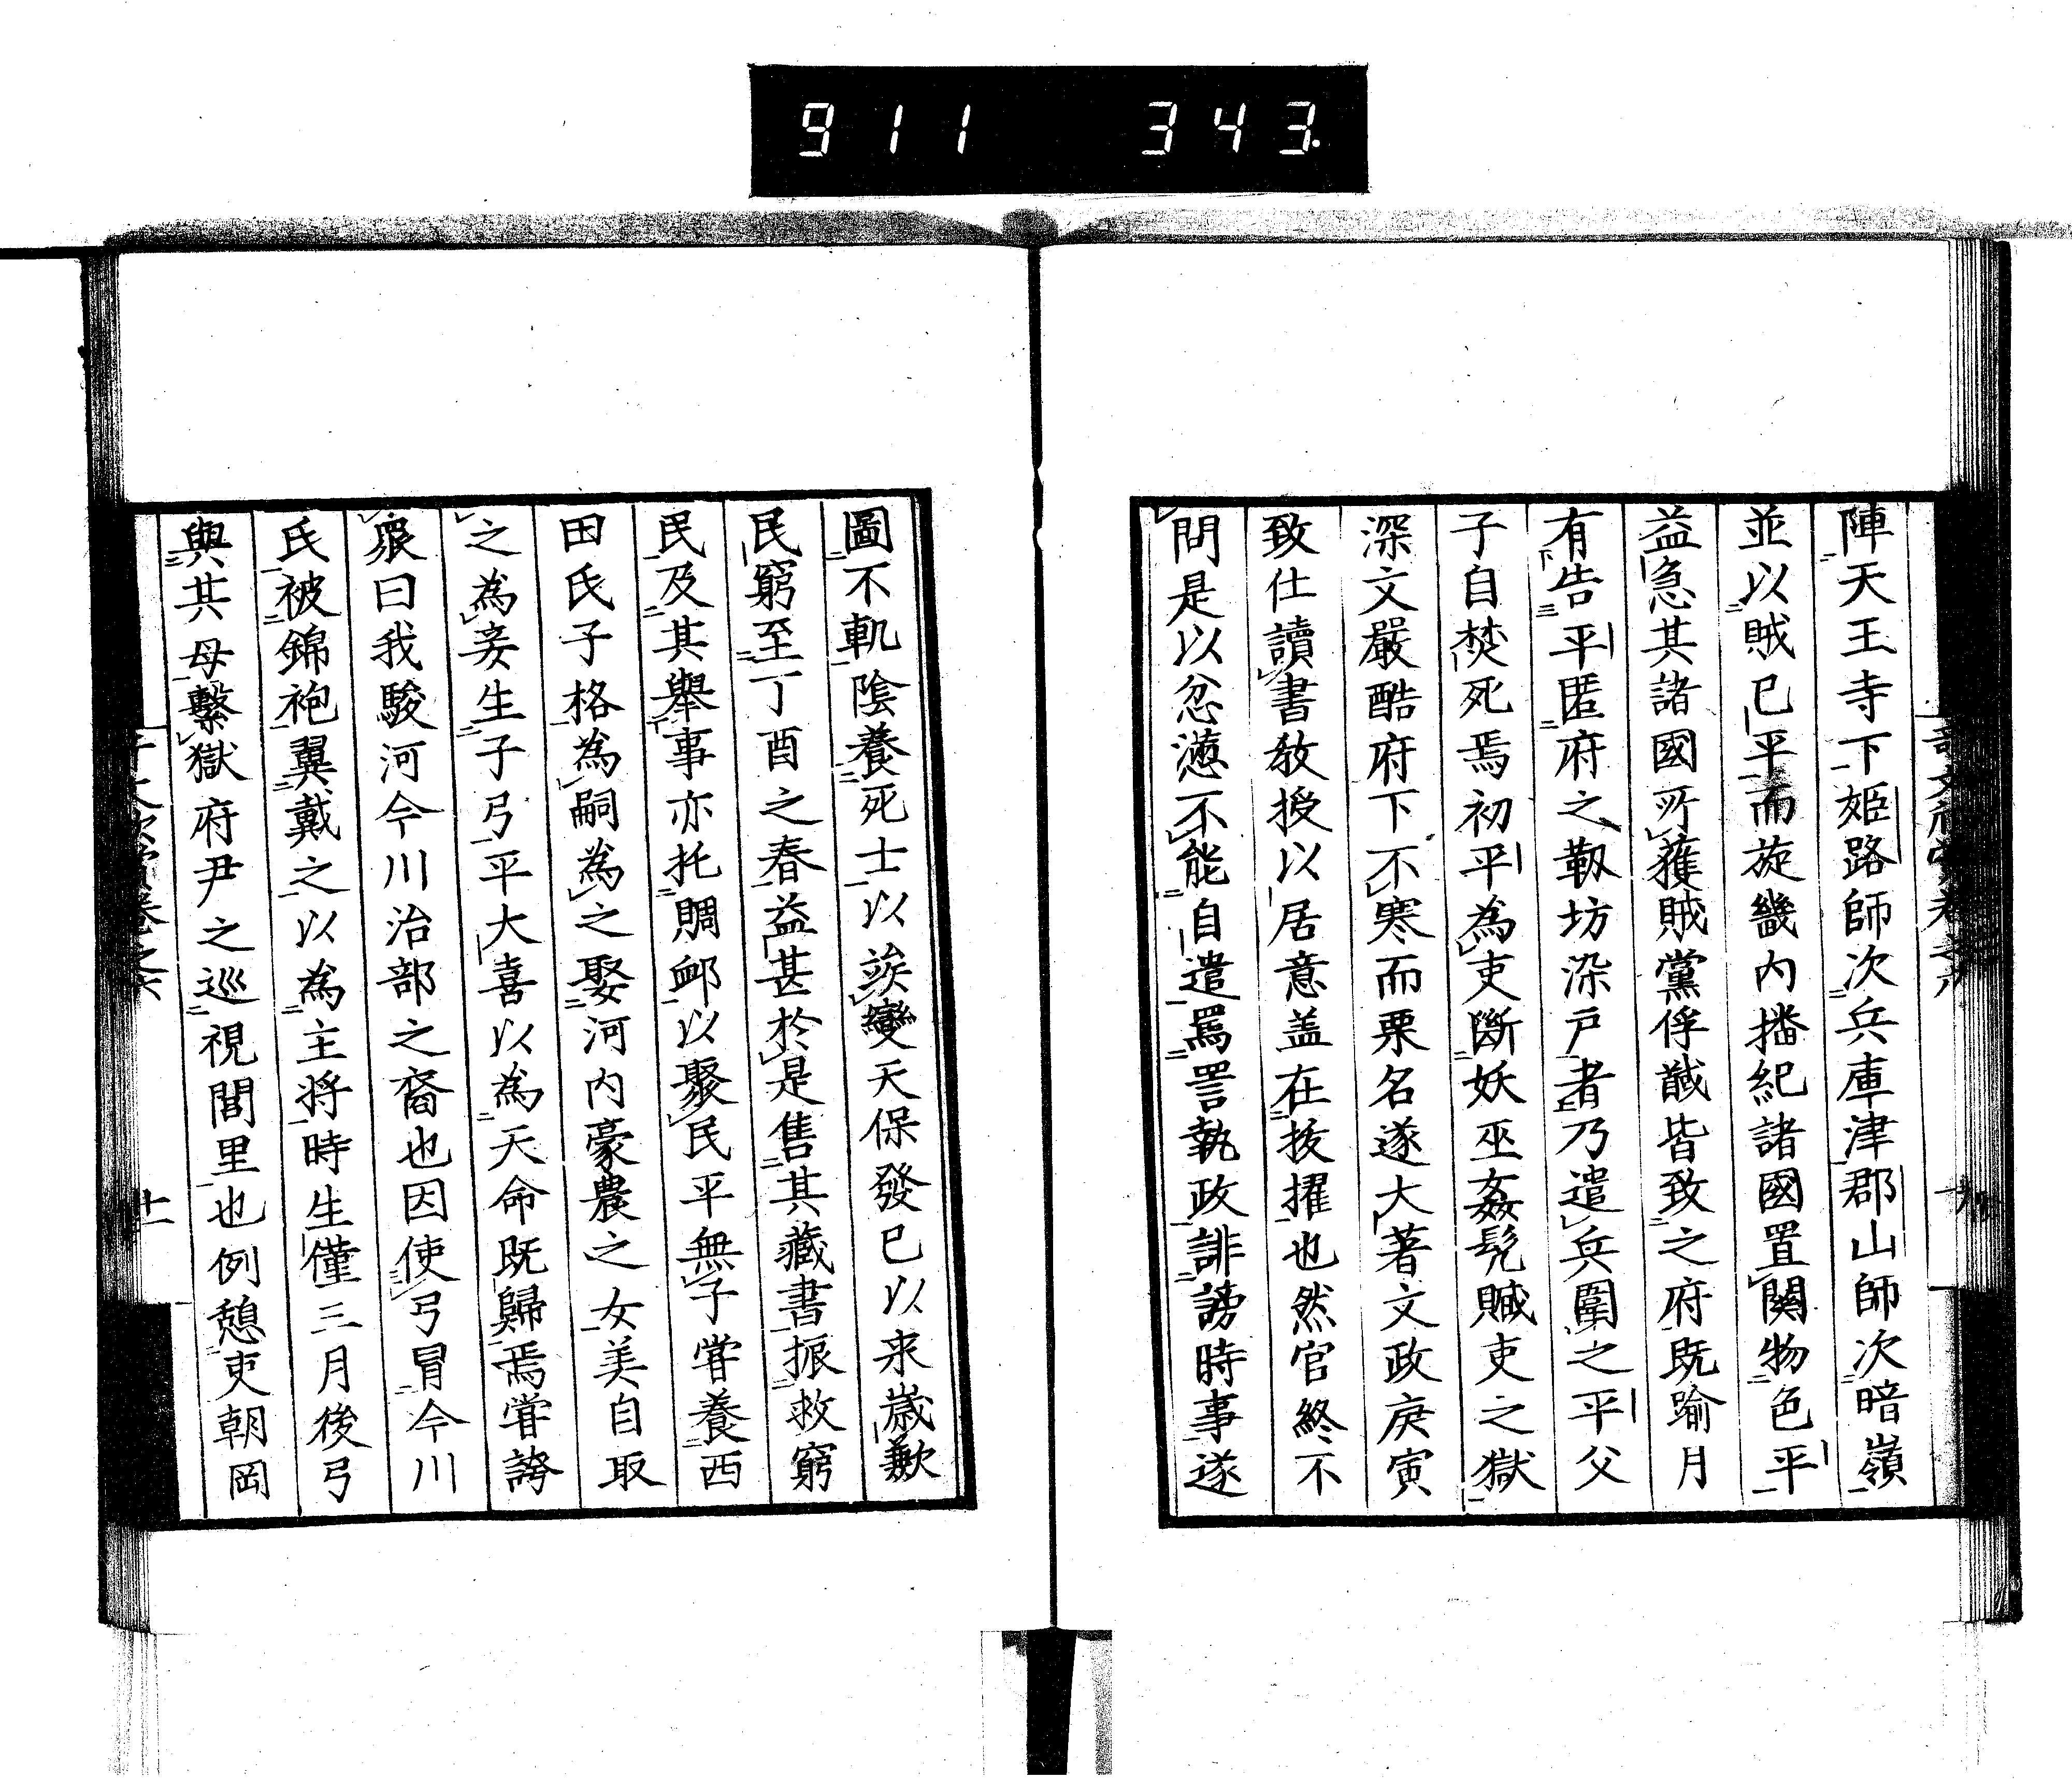 911 343.
陣天王寺下姫路師次兵庫津郡山師次暗嶺
並以賊已平而旋畿内播紀諸國置關物色平
益急其諸國所獲賊黨俘馘皆致之府既踰月
有告平匿府之靱坊染戸者乃遣兵圍之平父
子自焚死焉初平為吏斷妖巫姦髡贓吏之獄
深文嚴酷府下不寒而栗名遂大著文政庚寅
致仕讀書教授以居意盖在拔擢也然官終不
問是以忿懣不能自遣罵詈執政誹謗時事遂
圖不軌陰養死士以竢變天保發巳以来歳歉
民窮至丁酉之春益甚於是售其藏書振救窮
民及其舉事亦托賙卹以聚民平無子嘗養西
田氏子格為嗣為之娶河内豪農之女美自取
之為妾生子弓平大喜以為天命既歸焉嘗誇
衆曰我駿河今川治部之裔也因使弓冒今川
氏被錦袍翼戴之以為主将時生僅三月後弓
與其母繫獄府尹之巡視閭里也例憩吏朝岡
十一